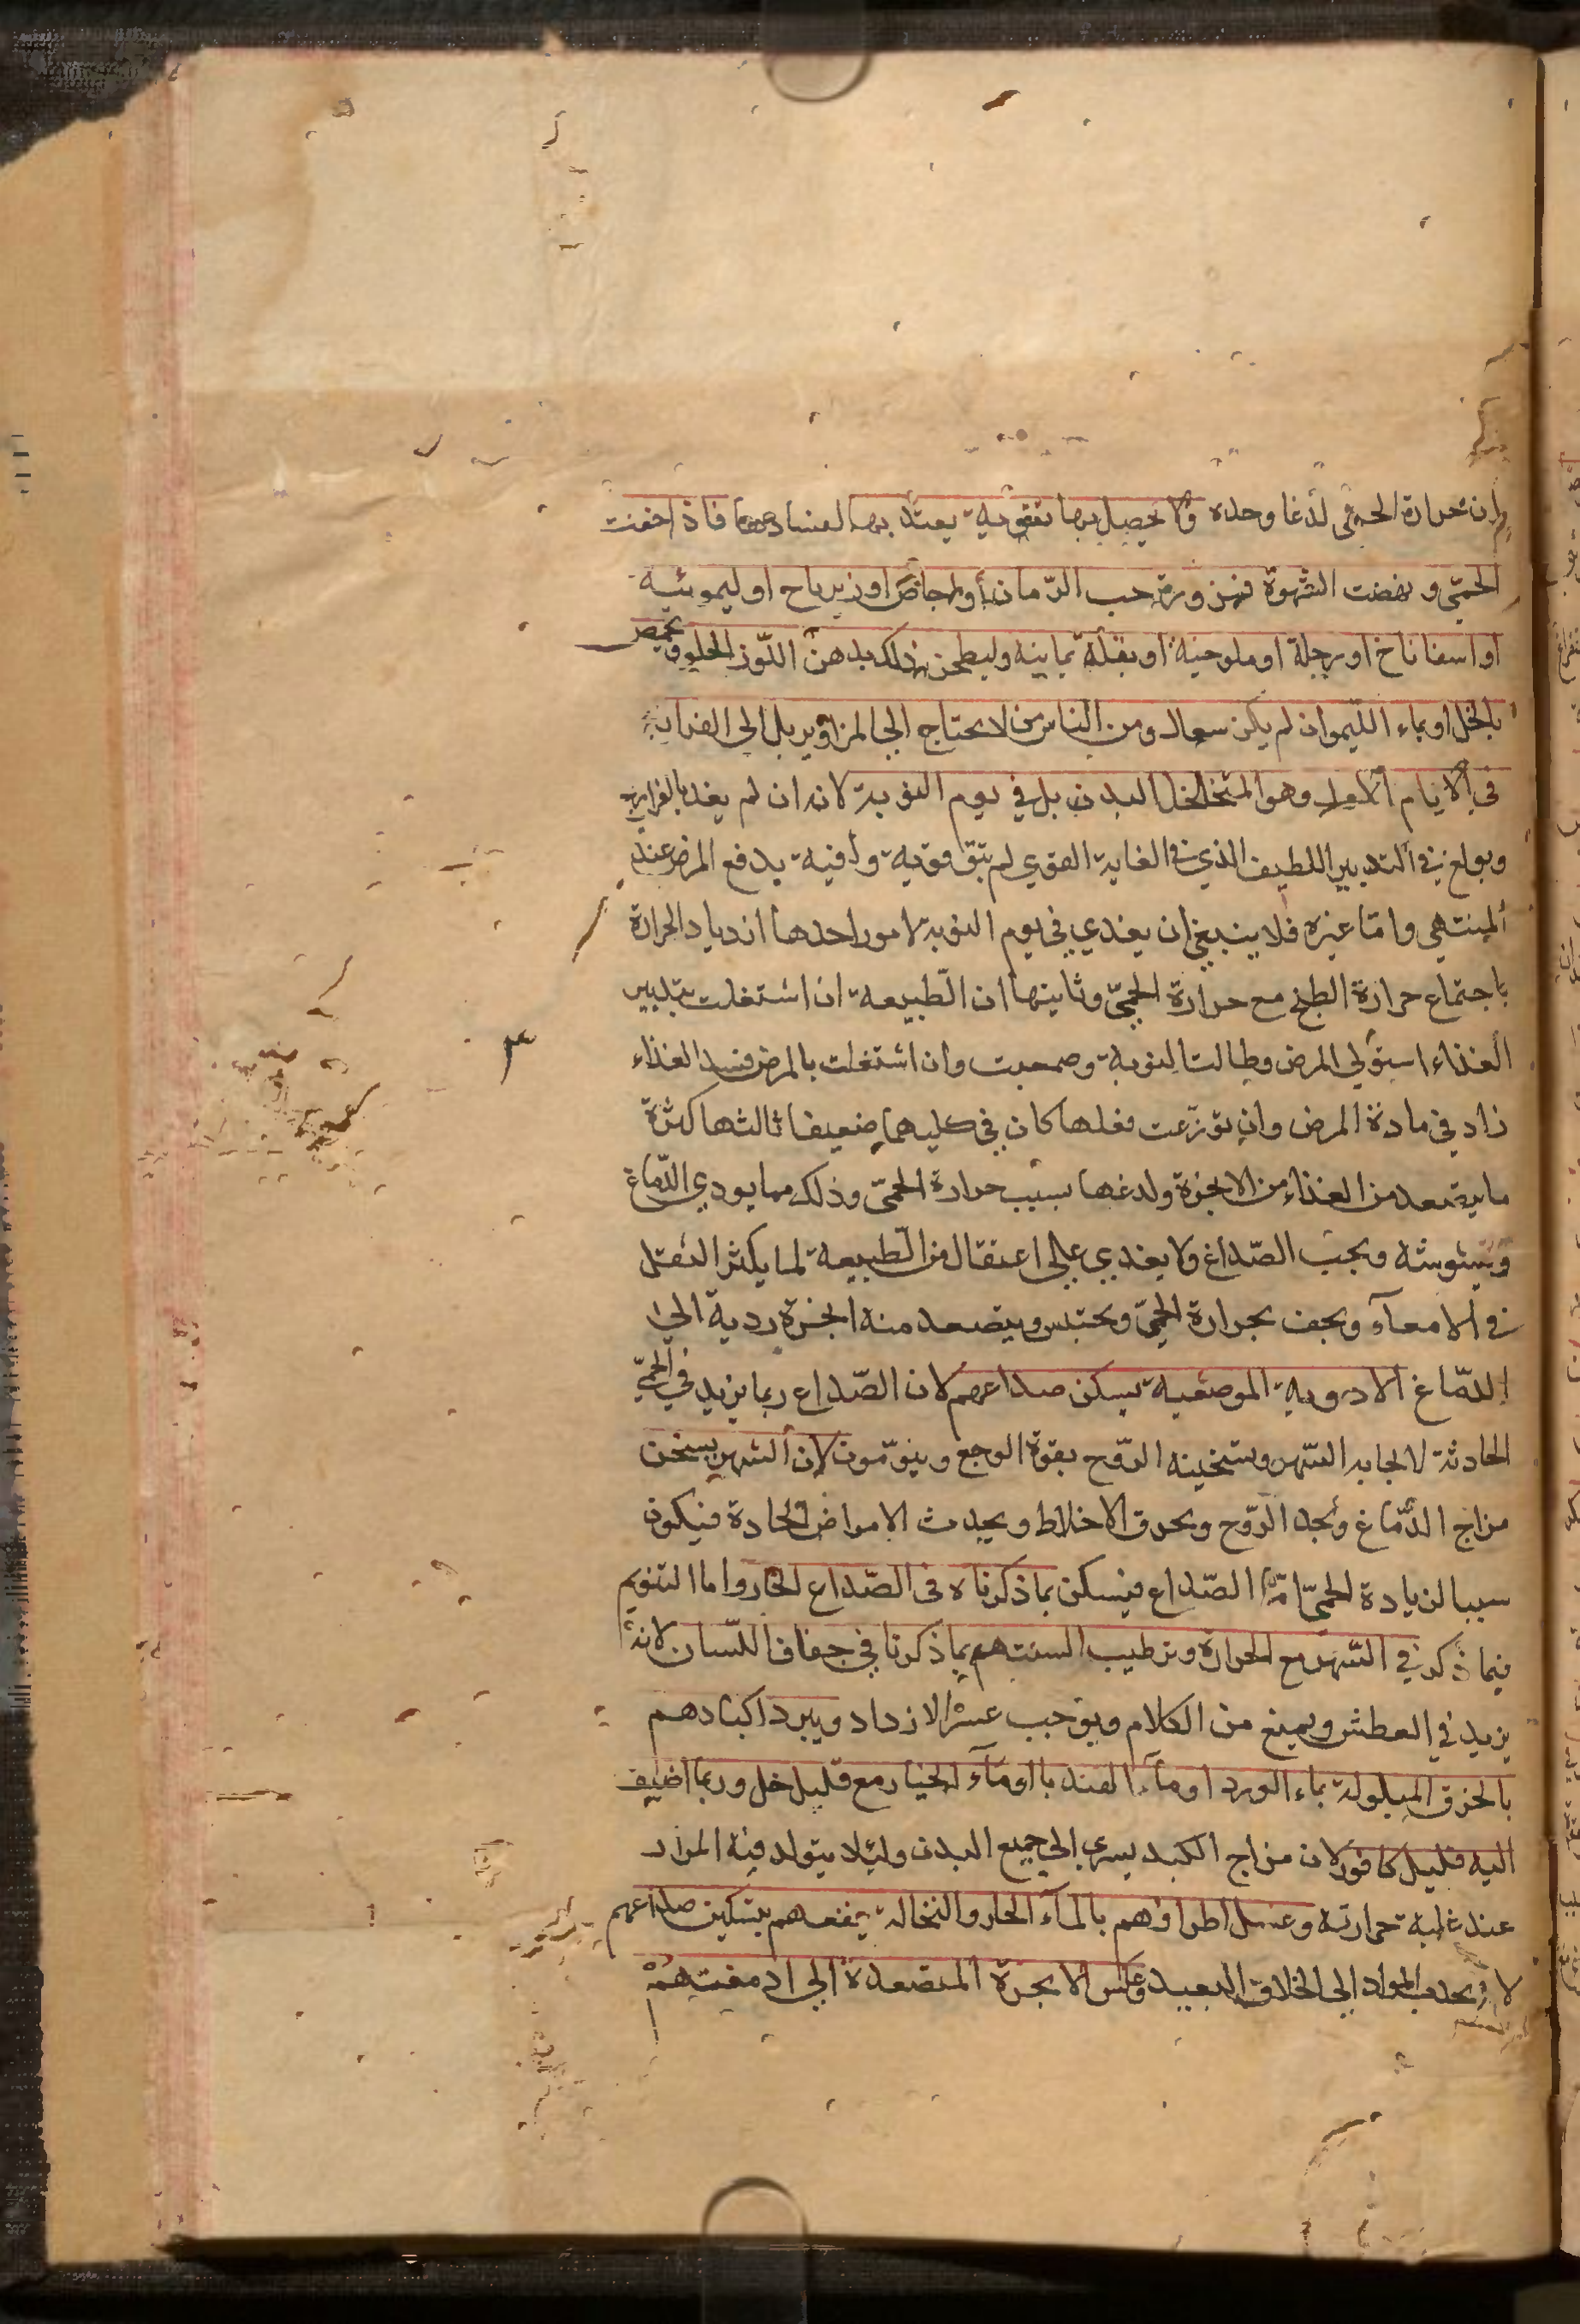 وان حرارة الحمى لذغا وحده ولا يحصل بها تقوية يعتد بها لفسادهما فاذا خفت
الحمى ونهضت الشهوة فمزورة حب الرمان أو اجاص او زيرباج او ليمونية
او اسفاناخ او رجلة او ملوخية او بقلة يمانية وليطجن ذلك بدهن اللوز الحلو ويحمض
بالخل او بماء الليمو ان لم يكن سعال ومن الناس من لا يحتاج الى المزاوير بل الى الفراريج
في الايام الاول وهو المتخلخل البدن بل في يوم النوبة لانه ان لم يغد بالفراريج
وبولغ في التدبير اللطيف الذي في الغاية القوي لم تبق قوية وافية يدفع المرض عند
المنتهى واما غيره فلا ينبغي ان يغدي في يوم النوبة لامور احدها ازدياد الحرارة
باجتماع حرارة الطبخ مع حرارة الحمى وثانيها ان الطبيعة ان اشتغلت بتدبير
الغذاء استولى المرض وطالت النوبة وصعبت وان اشتغلت بالمرض فسد الغذاء
زاد في مادة المرض وان توزعت فعلها كان في كليهما ضعيفا ثالثها كثرة
ما يتصعد من الغذاء من الابخرة ولدغها بسبب حرارة الحمى وذلك مما يودي الدماغ
ويشوشه ويجب الصداع ولا يغدي على اعتقال من الطبيعة لما يكثر الثقل
في الامعاء ويجف بحرارة الحمى ويحتبس ويتصعد منه ابخرة ردية الى
الدماغ الادوية الموضعية يسكن صداعهم لان الصداع ربما يزيد في الحمى
الحادثة لايجابه السهر وتسخينه الروح بقوة الوجع وينومون لان السهر يسخن
مزاج الدماغ ويحد الروح ويحرق الاخلاط ويحدث الامراض الحادة فيكون
سببا لزيادة الحمى اما الصداع فيسكن بما ذكرناه في الصداع الحار واما التنويم
فبما ذكر في السهر مع الحرارة وترطيب السنتهم بما ذكرنا في جفاف اللسان لانه
يزيد في العطش ويمنع من الكلام ويوجب عسر الازداد ويبرد اكبادهم
بالخرق المبلولة بماء الورد او ماء الهندبا او ماء الخيار مع قليل خل وربما اضيف
اليه قليل كافور لان مزاج الكبد يسري الى جميع البدن ولئلا يتولد فيه المرار
عند غلبة حرارته وغسل اطرافهم بالماء الحار والنخالة ينفعهم بتسكين صداعهم
لانه يجذب المواد الى الخلاف البعيد وعكس الابخرة المتصعدة الى ادمغتهم